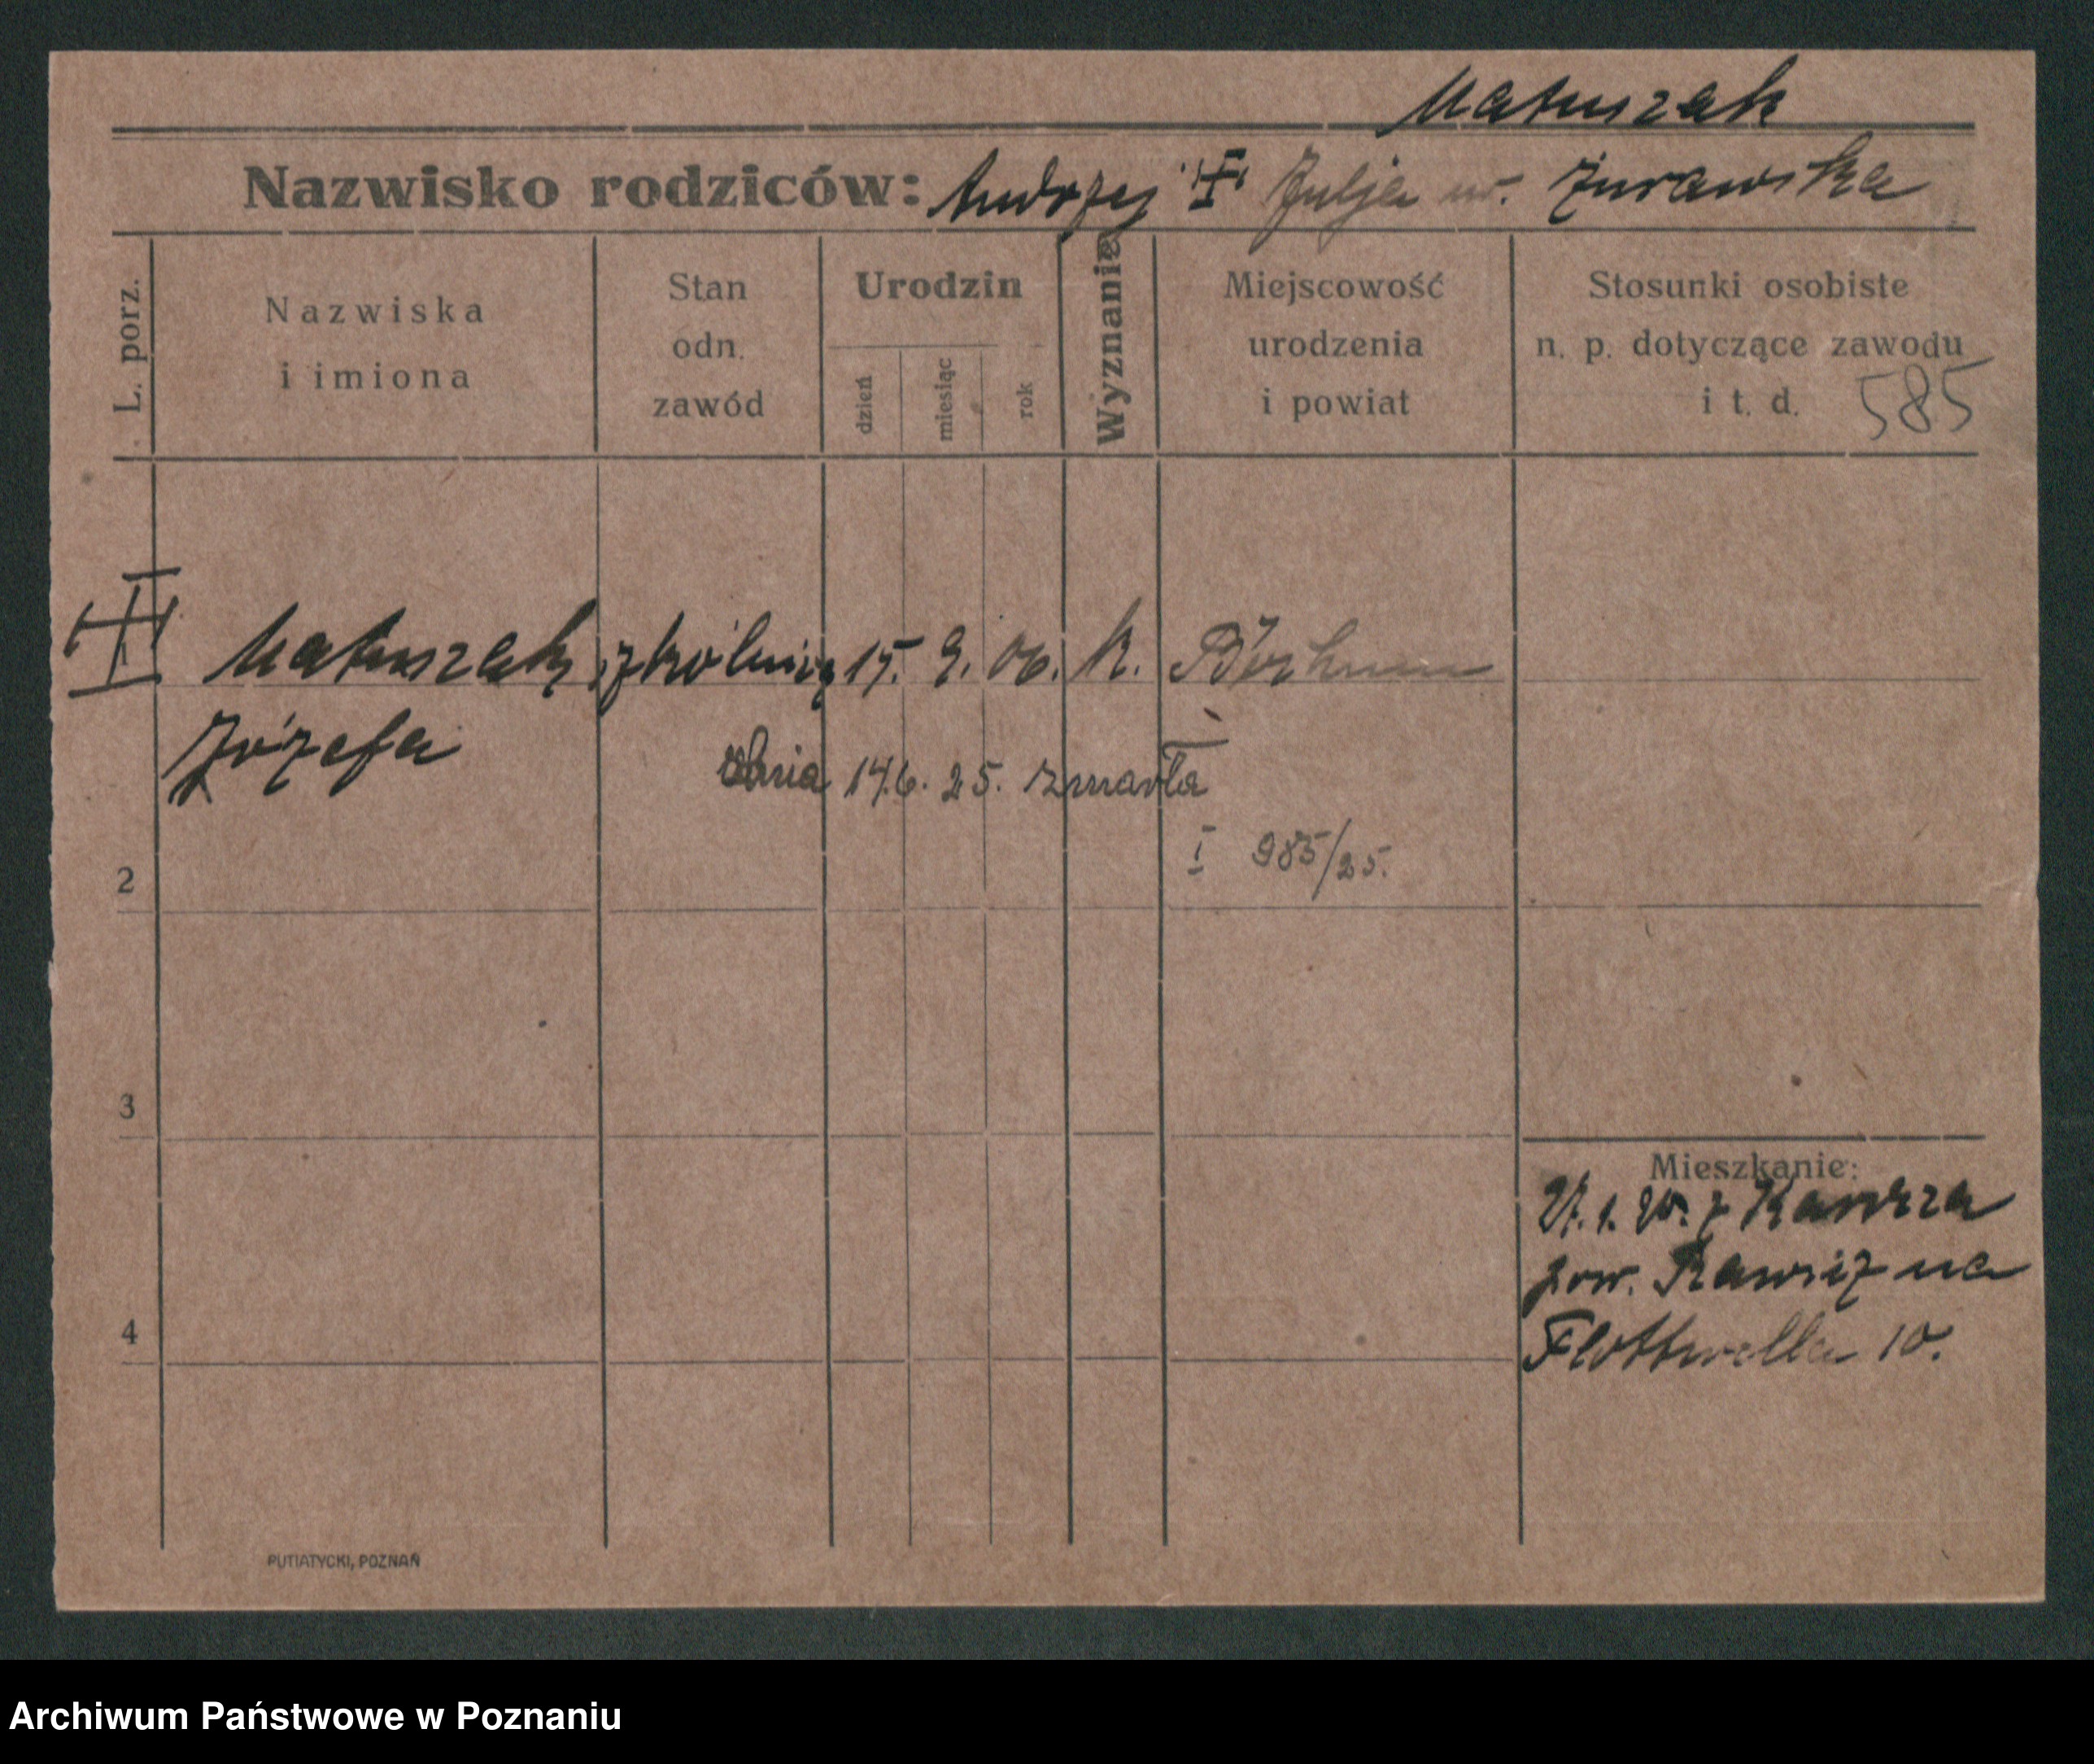 Matuszak
Nazwisko rodziców: Andrzej Julja ur. Żurawska
L. porz.
Nazwiska
i imiona
Stan
odn.
zawód
Urodzin
dzień
miesiąc
rok
Wyznanie
Miejscowość
urodzenia
i powiat
Stosunki osobiste
n. p. dotyczące zawodu
i t. d.
585
Matuszak 15. 9. 06. K.
Józefa
dnia 14.6. 25. zmarła
I 985/25.
2
3
4
Mieszkanie:
pow. Rawicz na
Flottwella 10.
PUTIATYCKI, POZNAŃ
Archiwum Państwowe w Poznaniu